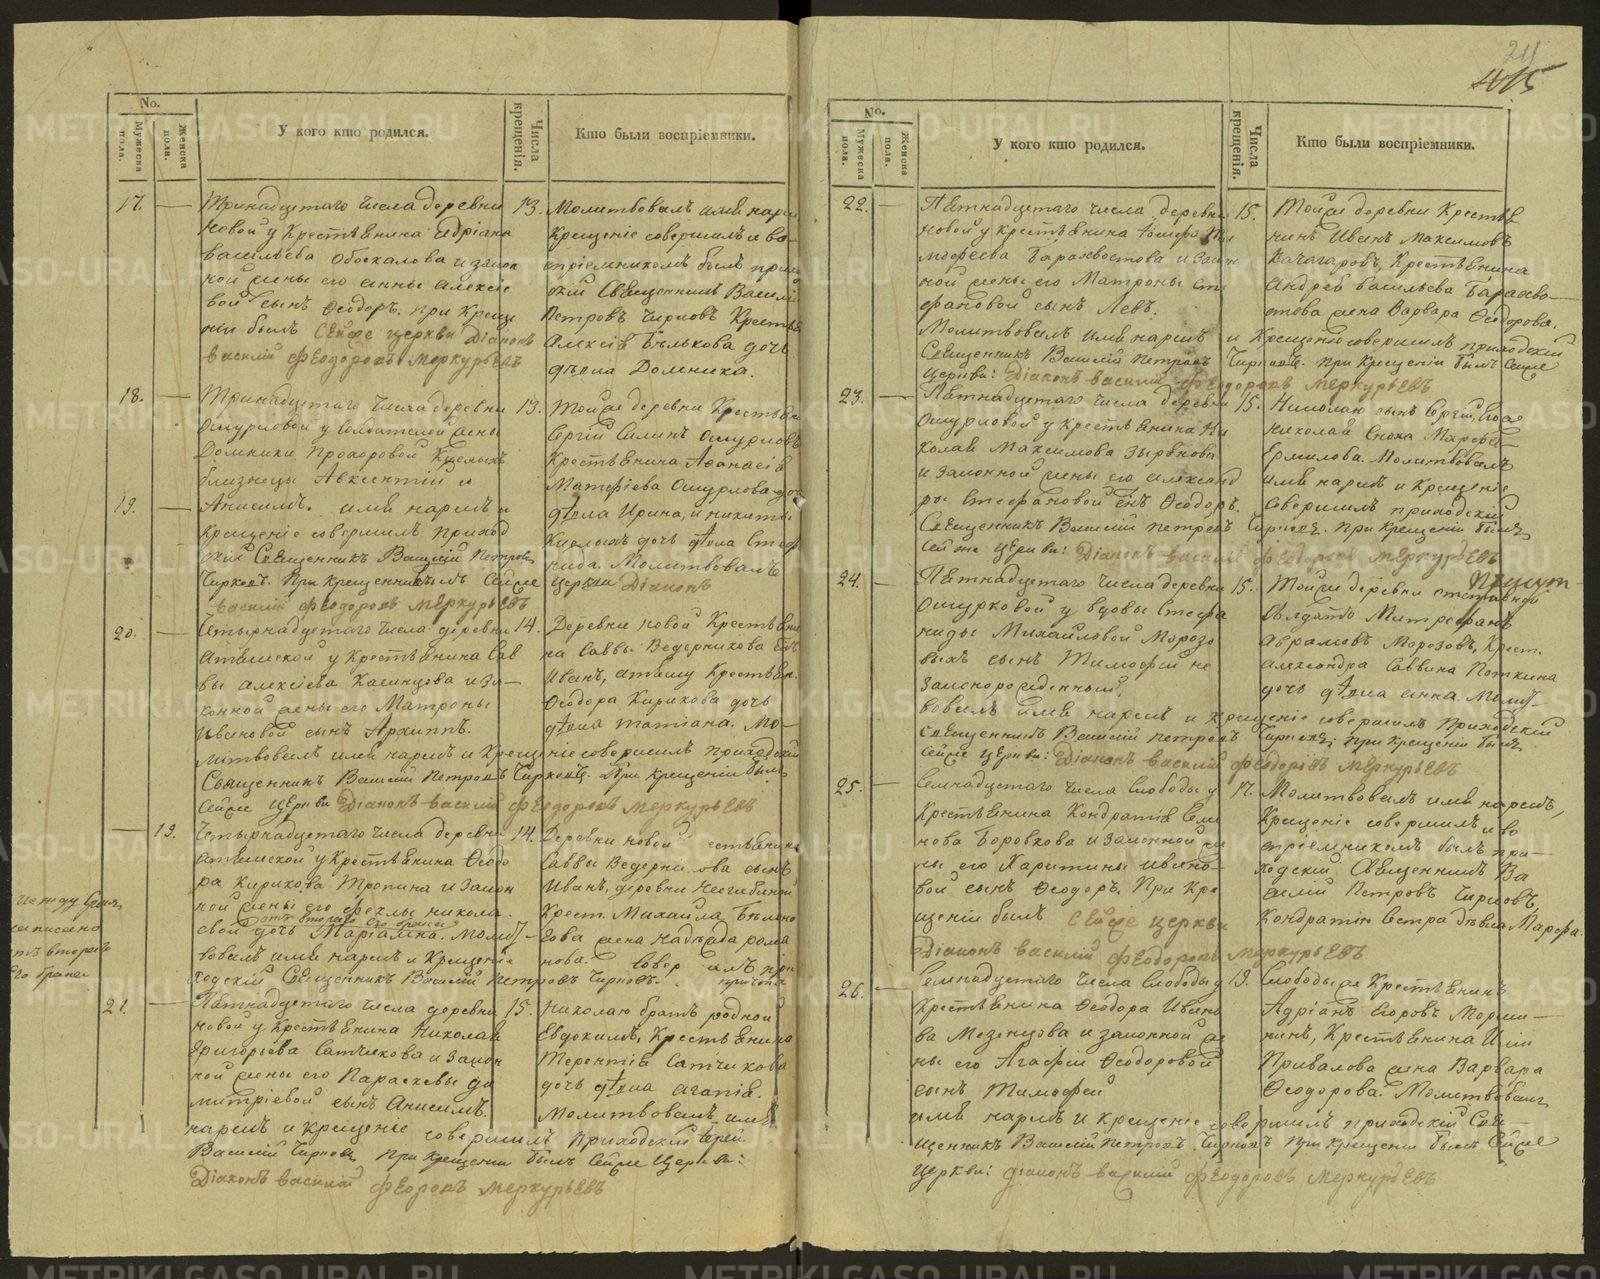 No.
Мужеска пола.
Женска пола.
У кого кто родился.
Числа крещенія.
Кто были воспріемники.
17. — Тринадцатаго числа деревни
новой у Крестьянина Адріана
васильева Обоскалова и закон
ной жены его Анны Алексѣе
вой сынъ Ѳеодоръ. При Креще
ніи былъ Сейже церкви Діаконъ
василій Феодоровъ Меркурьевъ
13. Молитвовалъ имя наре
Крещеніе совершилъ и во-
спріемникомъ былъ прихо
дскій Священникъ Василій
Петровъ Чирковъ Кресть
Алексія Бѣлькова дочь
дѣвка Домника.
18. — Тринадцатаго числа деревни
Ошурковой у Солдатской жены
Домники Прохоровой
близнецы Авксентій и
19. — Анисимъ. имя нарекъ и
Крещеніе совершилъ Приход
скій Священникъ Василій Петровъ
Чирковъ. При Крещеніи былъ Сейже
василій Феодоровъ Меркурьевъ
13. Тойже деревни Крестьян
Сергій Силинъ Ошурковъ
Крестьянина Аѳанасія
Матфіева Ошуркова доч
дѣвка Ирина, и никиты
дочь дѣвка Стеф
нида. Молитвовалъ
церкви Діаконъ
20. — Четырнадцатаго числа деревни
у Крестьянина Сав
вы Алексѣева Казанцова и за—
конной жены его Матроны
Ивановой сынъ Архиппъ.
литвовалъ имя нарекъ и Крещеніе совершилъ приходскій
Священникъ Василій Петровъ Чирковъ. При Крещеніи былъ
Сейже церкви Діаконъ василій Феодоровъ Меркурьевъ
14. Деревни новой Крестьяни
на Саввы Ведерникова
Иванъ, Крестьян.
Ѳеодора Кирикова дочь
дѣвка Татіана. Мо—
— 19. Четырнадцатаго числа деревни
у Крестьянина Ѳеодо
ра Кирикова Тропина и закон
ной жены его Феклы никола.
отъ втораго его брака
евой дочь Маріамна. Молит—
вовалъ имя нарекъ и Крещеніе
ходскій Священникъ Василій Петровъ Чирковъ.
14. Деревни новой
Саввы Ведерни ова сынъ
Иванъ, деревни
Крест. Михаила
жена Надежда рома
нова. Совер илъ при
между строкъ
написано
отъ втораго
его брака
21. — Пятнадцатаго числа деревни
новой у Крестьянина Николая
Григорьева Сатчикова и закон
ной жены его Параскевы Ди
митріевой сынъ Анисимъ.
нарекъ и Крещеніе совершилъ Приходскій Іерей
Василій Чирковъ при Крещеніи былъ Сейже Церкви:
Діаконъ василій Феоровъ Меркурьевъ
15. Николаю братъ родной
Евдокимъ, Крестьянина
Терентія Сатчикова
дочь дѣвка Агапія.
Молитвовалъ имя
211
No.
Мужеска пола.
Женска пола.
У кого кто родился.
Числа крещенія.
Кто были воспріемники.
22. — Пятнадцатаго числа деревни
новой у крестьянина
мофеева Барахвостова и закон
ной жены его Матроны Сте
фановой сынъ Левъ.
Молитвовалъ имя нарекъ и Крещеніе совершилъ приходскій
Священникъ Василій Петровъ Чирковъ. При Крещеніи былъ Сейже
Церкви: Діаконъ василій Феодоровъ Меркурьевъ
15. Тойже деревни Крестья
нинъ Иванъ Максимовъ
Качагаровъ, Крестьянина
Андрея васильева Барахво—
стова жена Варвара Ѳеодорова.
23. — Пятнадцатаго числа деревни
Ошурковой у крестьянина Ни
колая Максимова Зырянова
и законной жены его Александ
ры Стефановой Ѳеодоръ.
Священникъ Василій Петровъ Чирковъ. При Крещеніи былъ
сейже Церкви: Діаконъ василій Феодоровъ Меркурьевъ
15. Николаю сынъ
Николай Марфа
Ермилова. Молитвовалъ
имя нарекъ и Крещеніе
совершилъ приходскій
24. — Пятнадцатаго числа деревни
Ошурковой у вдовы Стефа
ниды Михайловой Морозо
выхъ сынъ Тимофей не
законорожденный.
вовалъ имя нарекъ и Крещеніе совершилъ Приходскій
Священникъ Василій Петровъ Чирковъ; при Крещеніи былъ
Сейже Церкви: Діаконъ василій Феодоровъ Меркурьевъ
15. Тойже деревни отставной
Солдатъ Митрофанъ
Абрамовъ Морозовъ, Крест.
Александра Саввина Поткина
дочь дѣвка Анна. Молит—
25. — Семнадцатаго числа Слободы у
Крестьянина Кондратія Семе
нова Боровкова и законной же
ны его Харитины Ивано—
вой сынъ Ѳеодоръ. При Кре
щеніи былъ Сейже церкви
Діаконъ василій Феодоровъ Меркурьевъ
17. Молитвовалъ имя нарекъ,
Крещеніе совершилъ и во
спріемникомъ былъ при—
ходскій Священникъ Ва
силій Петровъ Чирковъ,
Кондратію Сестра дѣвка Марфа.
26. — Семнадцатаго числа Слободы у
Крестьянина Ѳеодора Ивано
ва Мезенцова и законной же
ны его Агафіи Ѳеодоровой
сынъ Тимофей
имя нарекъ и Крещеніе совершилъ приходскій Свя
щенникъ Василій Петровъ Чирковъ При Крещеніи былъ Сейже
Церкви: Діаконъ василій Феодоровъ Меркурьевъ
19. Слободыже Крестьянинъ
Адріанъ Егоровъ
нинъ, Крестьянина
Привалова жена Варвара
Ѳеодорова. Молитвовалъ